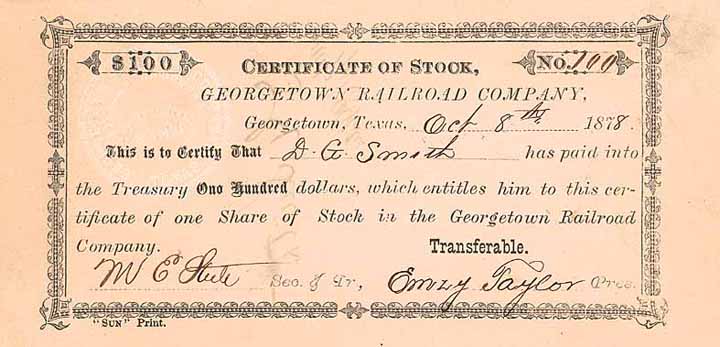 $100 CERTIFICATE OF STOCK, NO. 100
GEORGETOWN RAILROAD COMPANY,
Georgetown, Texas, Oct 8th 1878.
This is to Certify That D. G. Smith has paid into
the Treasury One Hundred dollars, which entitles him to this cer-
tificate of one Share of Stock in the Georgetown Railroad
Company. Transferable.
M E Sec. & Tr, Emzy Taylor Pres.
"SUN" Print.